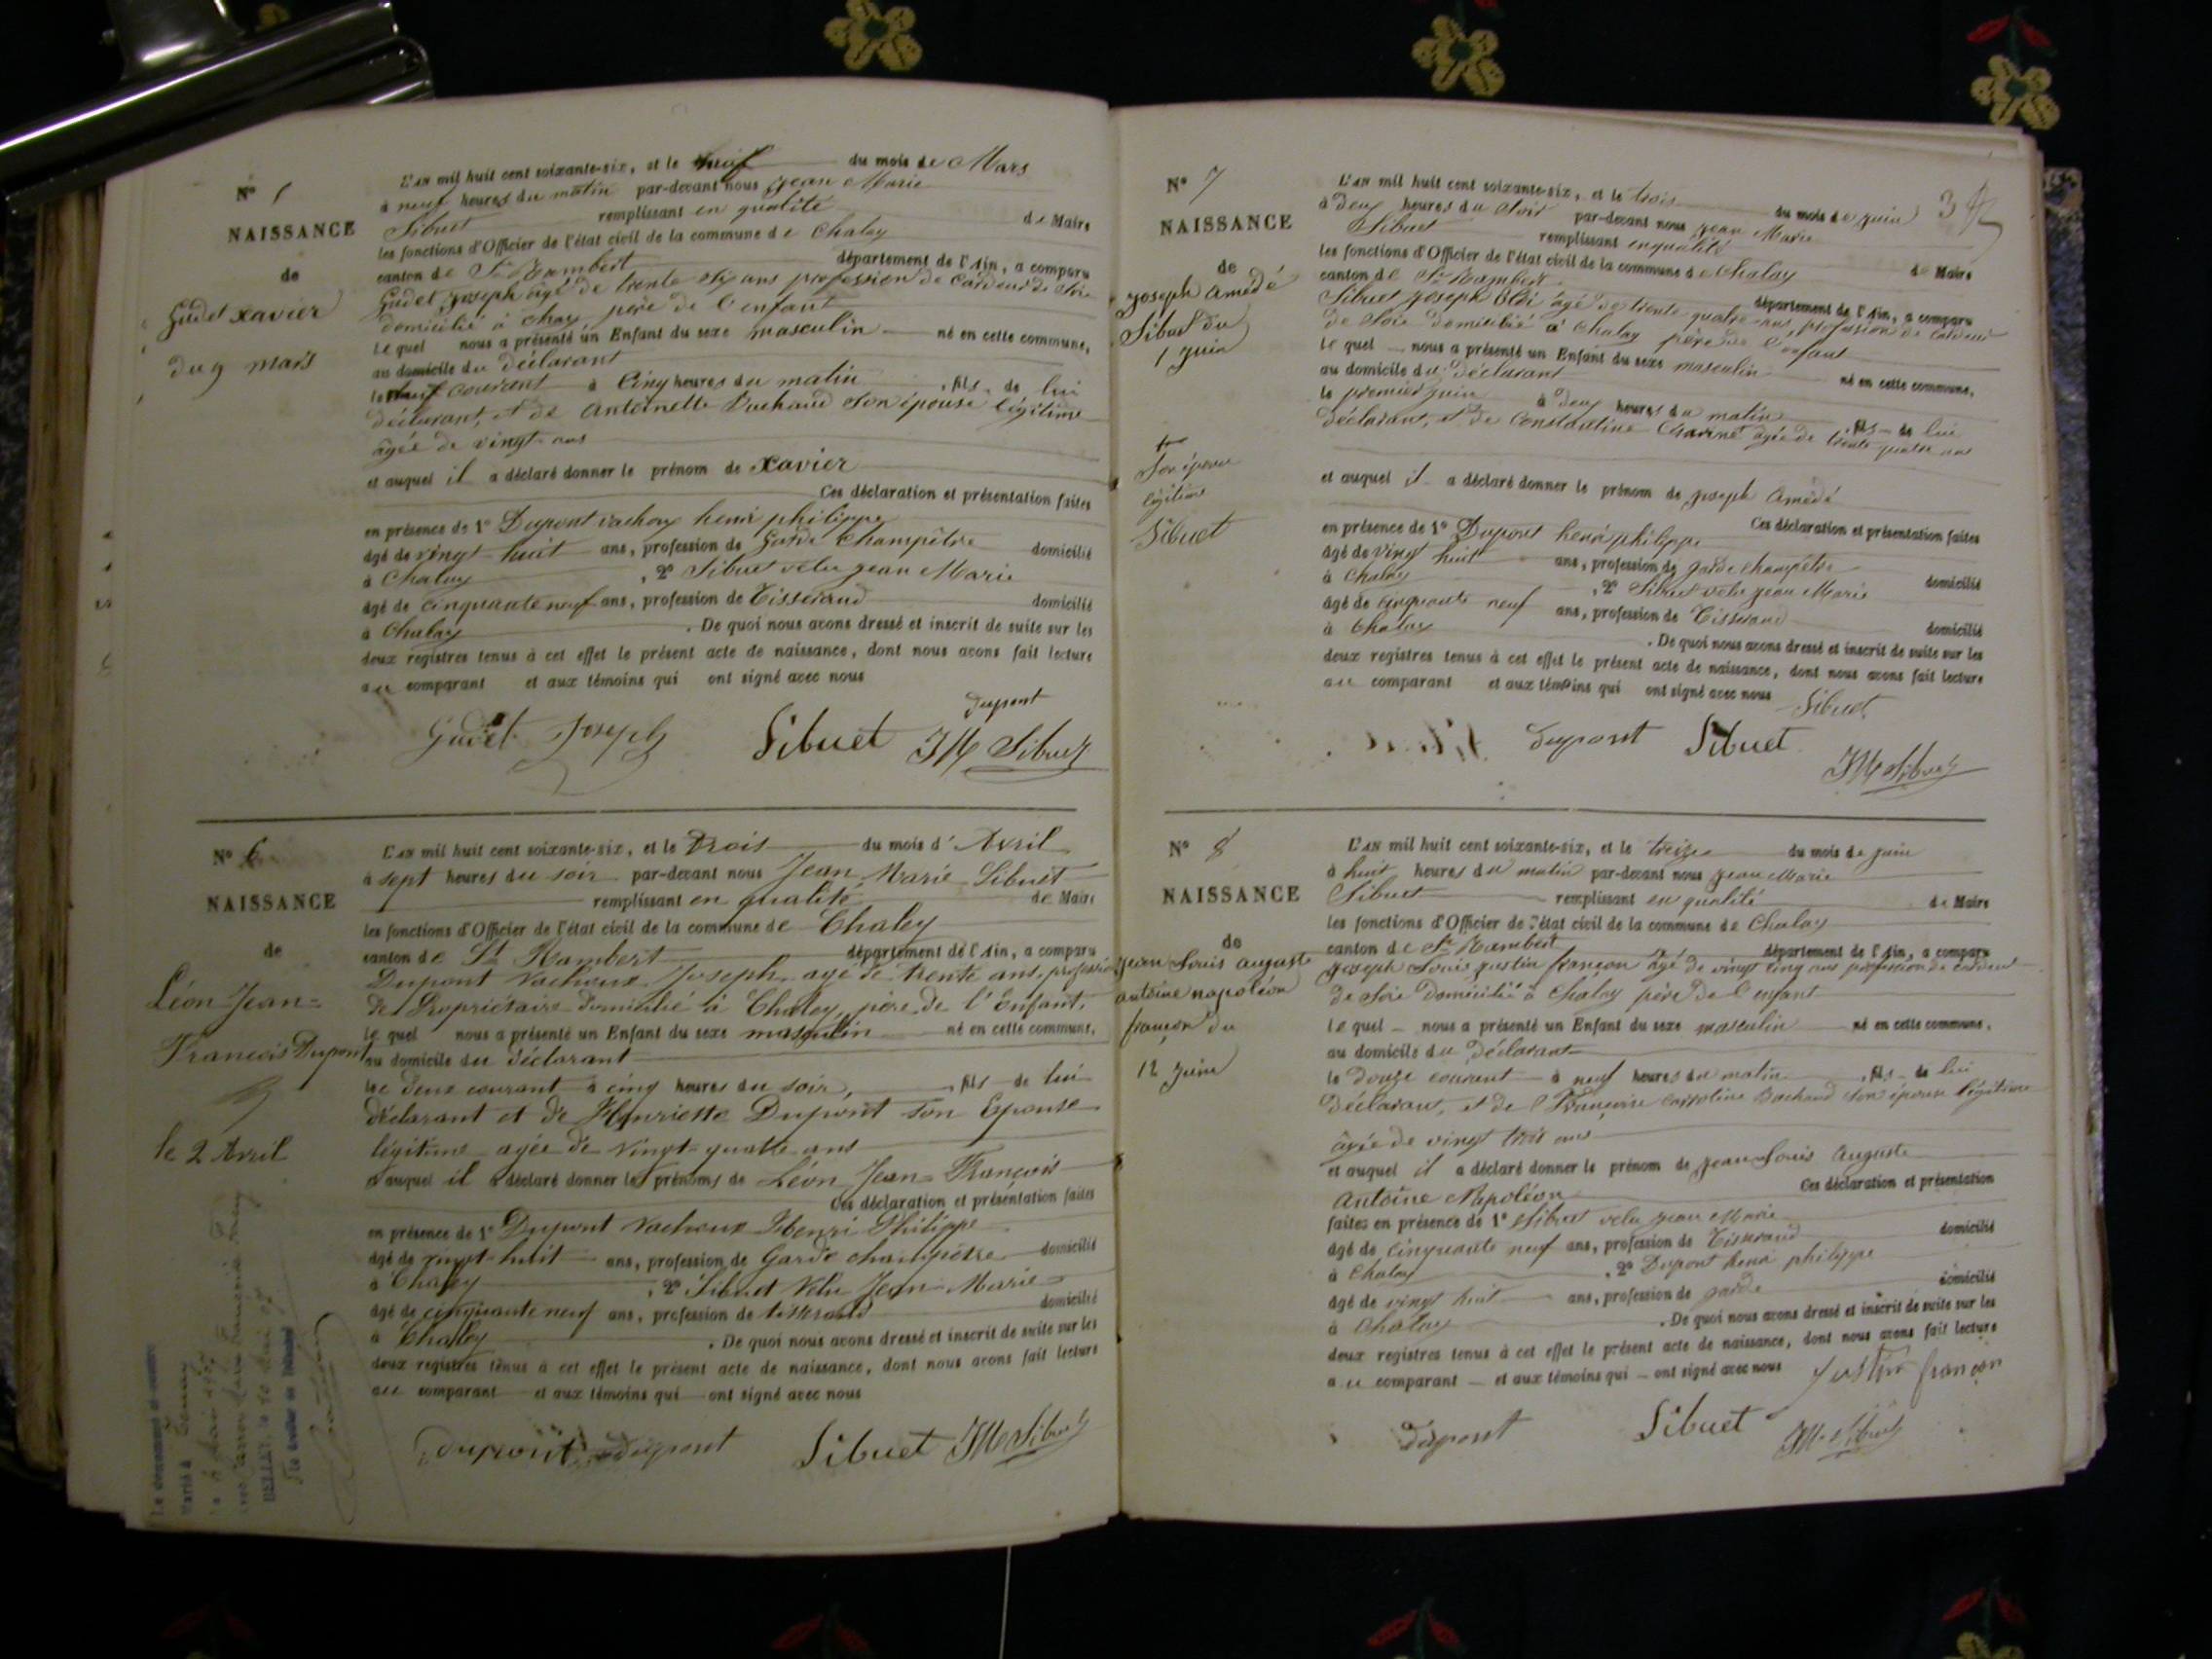 L'AN mil huit cent soixante-six, et le neuf du mois de Mars
N°
à neuf heures du matin par-devant nous jean Marie
NAISSANCE
Sibuet remplissant en qualité de Maire
les fonctions d'Officier de l'état civil de la commune de Chaley
de
canton de St Rambert département de l'Ain, a comparu
Gudet joseph âgé de trente six ans profession de Cardeur de Soie
Gudet xavier
domicilié à chaley père de l'enfant
Lequel nous a présenté un Enfant du sexe masculin né en cette commune,
du 9 mars
au domicile du déclarant
le neuf courant à Cinq heures du matin, fils de lui
déclarant, et de Antoinette son épouse légitime
âgée de vingt ans
et auquel il a déclaré donner le prénom de Xavier
Ces déclaration et présentation faites
en présence de 1° Dupont vachoux henri philippe
âgé de vingt huit ans, profession de Garde Champêtre domicilié
à Chaley, 2° Sibuet velu jean Marie
âgé de cinquante neuf ans, profession de Tisserand domicilié
à Chaley. De quoi nous avons dressé et inscrit de suite sur les
deux registres tenus à cet effet le présent acte de naissance, dont nous avons fait lecture
au comparant et aux témoins qui ont signé avec nous
dupont
Gudet Joseph Sibuet JM Sibuet
N° 6
L'AN mil huit cent soixante-six, et le Trois du mois d'Avril
à sept heures du soir par-devant nous Jean Marie Sibuet
NAISSANCE
remplissant en qualité de Maire
les fonctions d'Officier de l'état civil de la commune de Chaley
de
canton de St Rambert département de l'Ain, a comparu
Dupont Vachoux Joseph agé de trente ans, profession
Léon Jean=
de Propriétaire domicilié à Chaley, père de l'enfant,
Lequel nous a présenté un Enfant du sexe masculin né en cette commune,
François Dupont
au domicile du déclarant
le deux courant à cinq heures du soir, fils de lui
déclarant et de Henriette Dupont son Epouse
le 2 Avril
légitime agée de vingt-quatre ans
et auquel il a déclaré donner les prénoms de Léon Jean=François
Ces déclaration et présentation faites
en présence de 1° Dupont Vachoux Henri Philippe
âgé de vingt-huit ans, profession de Garde champêtre domicilié
à Chaley, 2° Sibuet Velu Jean-Marie
âgé de cinquante neuf ans, profession de tisserand domicilié
à Chaley. De quoi nous avons dressé et inscrit de suite sur les
deux registres tenus à cet effet le présent acte de naissance, dont nous avons fait lecture
au comparant et aux témoins qui ont signé avec nous
Dupont dupont Sibuet JM Sibuet
N° 7
L'AN mil huit cent soixante-six, et le trois du mois de juin
3
à deux heures du Soir par-devant nous jean Marie
NAISSANCE
Sibuet remplissant en qualité de Maire
les fonctions d'Officier de l'état civil de la commune de Chaley
de
canton de St Rambert département de l'Ain, a comparu
joseph Amedé
Sibuet joseph âgé de trente quatre ans, profession de Cardeur
Sibuet du
de Soie domicilié à Chaley père de l'enfant
1 juin
Lequel nous a présenté un Enfant du sexe masculin né en cette commune,
au domicile du déclarant
le premier juin à deux heures du matin, fils de lui
déclarant, et de Constantine âgée de trente quatre ans
son épouse
légitime
Sibuet
et auquel il a déclaré donner le prénom de joseph Amedé
Ces déclaration et présentation faites
en présence de 1° Dupont henri philippe
âgé de vingt huit ans, profession de garde champêtre domicilié
à Chaley, 2° Sibuet velu jean Marie
âgé de cinquante neuf ans, profession de Tisserand domicilié
à Chaley. De quoi nous avons dressé et inscrit de suite sur les
deux registres tenus à cet effet le présent acte de naissance, dont nous avons fait lecture
au comparant et aux témoins qui ont signé avec nous Sibuet
dupont Sibuet
JM Sibuet
N° 8
L'AN mil huit cent soixante-six, et le treize du mois de juin
à huit heures du matin par-devant nous jean Marie
NAISSANCE
Sibuet remplissant en qualité de Maire
les fonctions d'Officier de l'état civil de la commune de Chaley
de
canton de St Rambert département de l'Ain, a comparu
jean Louis auguste
joseph Louis justin françon âgé de vingt cinq ans profession de cardeur
antoine napoléon
de Soie Domicilié à Chaley père de l'enfant
françon du
Lequel nous a présenté un Enfant du sexe masculin né en cette commune,
12 juin
au domicile du Déclarant
le douze courant à neuf heures du matin, fils de lui
déclarant, et de Françoise Bachaud son épouse légitime
âgée de vingt trois ans
et auquel il a déclaré donner le prénom de jean Louis Auguste
Antoine Napoléon Ces déclaration et présentation
faites en présence de 1° Sibuet velu jean Marie
âgé de cinquante neuf ans, profession de Tisserand domicilié
à Chaley, 2° Dupont henri philippe
âgé de vingt huit ans, profession de garde domicilié
à Chaley. De quoi nous avons dressé et inscrit de suite sur les
deux registres tenus à cet effet le présent acte de naissance, dont nous avons fait lecture
au comparant et aux témoins qui ont signé avec nous Justin françon
Dupont Sibuet JM Sibuet